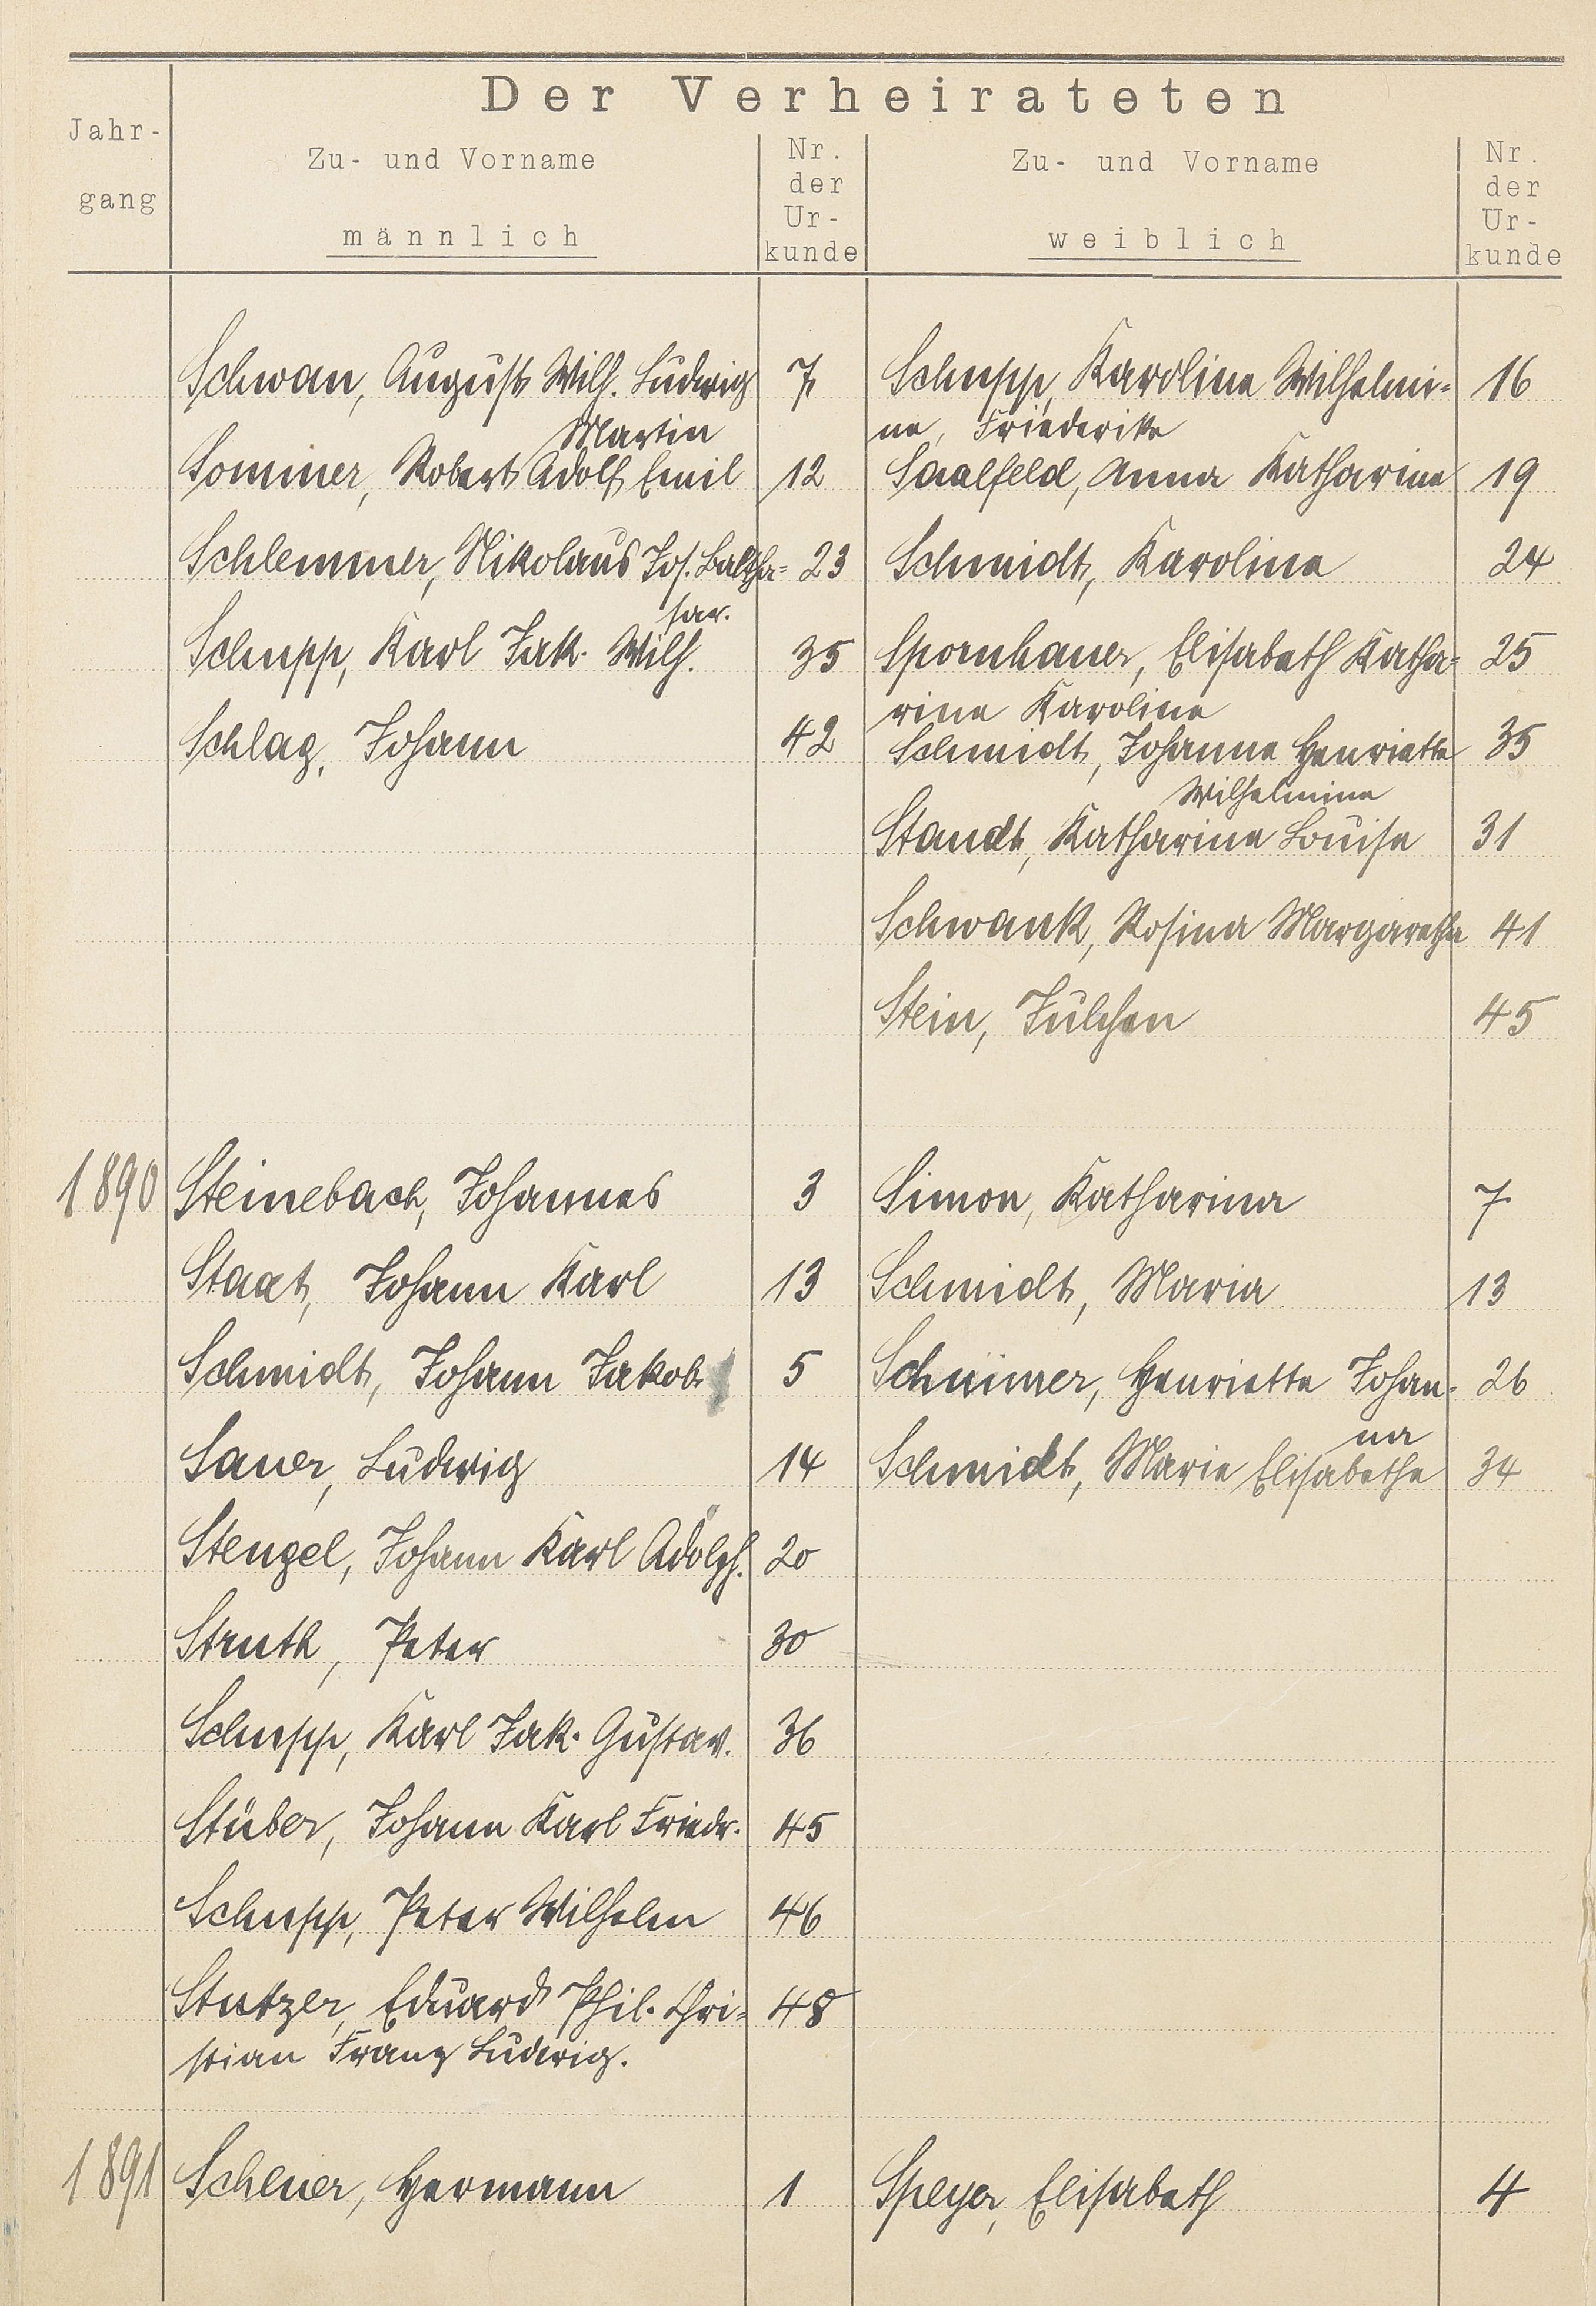 Der Verheirateten
Jahr-
gang
Zu- und Vorname
männlich
Nr.
der
Ur-
kunde
Zu- und Vorname
weiblich
Nr.
der
Ur-
kunde
Schwan, August Wilh. Ludwig 7 Schupp, Karoline Wilhelmi- 16
Martin ne, Friederike
Sommer, Robert Adolf, Emil 12 Saalfeld, Anna Katharine 19
Schlemmer, Nikolaus Jos. Baltha- 23 Schmidt, Karoline 24
sar.
Schupp, Karl Jak. Wilh. 35 Spornhauer, Elisabeth Katha- 25
rine Karoline
Schlag, Johann 42 Schmidt, Johanne Henriette 35
Wilhelmine
Staudt, Katharine Louise 31
Schwank, Rosina Margaretha 41
Stein, Julchen 45
1890 Steinebach, Johannes 3 Simon, Katharina 7
Staat, Johann Karl 13 Schmidt, Maria 13
Schmidt, Johann Jakob 5 Henriette Johan- 26
na
Sauer, Ludwig 14 Schmidt, Marie Elisabethe 34
Stengel, Johann Karl Adolph. 20
Struth, Peter 30
Schupp, Karl Jak. Gustav. 36
Stüber, Johann Karl Friedr. 45
Schupp, Peter Wilhelm 46
Stutzer, Eduard Phil. Chri- 48
stian Franz Ludwig.
1891 Scheuer, Hermann 1 Speyer, Elisabeth 4